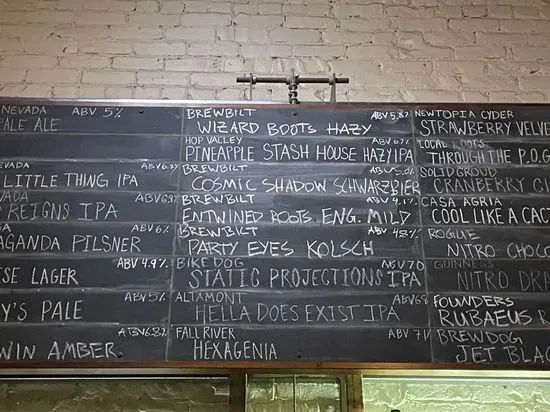 NEVADA ABV 5%
PALE ALE
EVADA ABV 6.7%
LITTLE THING IPA
VADA
REIGNS IPA
AGANDA PILSNER
ABV 4.9%
SE LAGER
ABV 5%
Y'S PALE
ABV 6.8%
WIN AMBER
BREWBILT
WIZARD BOOTS HAZY
HOP VALLEY
PINEAPPLE STASH HOUSE HAZY IPA
BREWBILT
COSMIC SHADOW SCHWARZBIER
BREWBILT
ENTWINED ROOTS ENG. MILD
BREWBILT
PARTY EYES KOLSCH
BIKE DOG
STATIC PROJECTIONS IPA
ALTAMONT
HELLA DOES EXIST IPA
FALL RIVER ABV 7%
HEXAGENIA
NEWTOPIA CYDER
STRAWBERRY VELVE
LOCAL ROOTS
THROUGH THE P.O.G
SOLID GROUD
CRANBERRY C
CASA AGRIA
COOL LIKE A CAC
ROGUE
NITRO CHOCO
GUINNESS
NITRO DR
FOUNDERS
RUBAEUS R
BREWDOG
JET BLAC